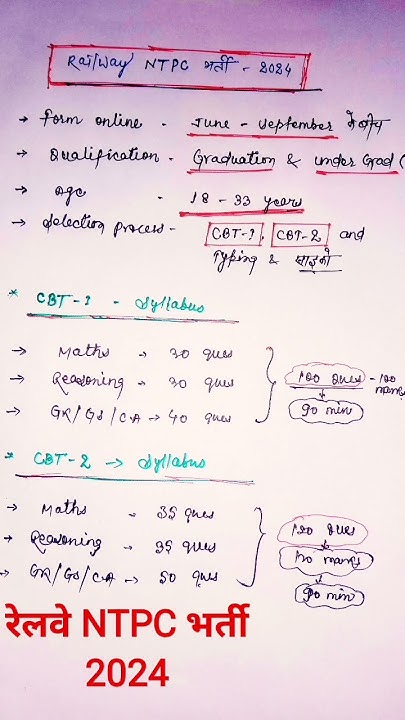 Railway NTPC भर्ती - 2024
→ Form online - June - September के बीच
→ Qualification - Graduation & under Grad (
→ Age - 18 - 33 years
→ Selection process - CBT-1, CBT-2 and
Typing & साइको
* CBT-1 - Syllabus
→ Maths → 30 ques
→ Reasoning → 30 ques
→ GK/GS/CA → 40 ques
100 ques - 100 marks
90 min
* CBT-2 → Syllabus
→ Maths → 35 ques
→ Reasoning → 35 ques
→ GK/GS/CA → 50 ques
120 ques
120 marks
90 min
रेलवे NTPC भर्ती
2024